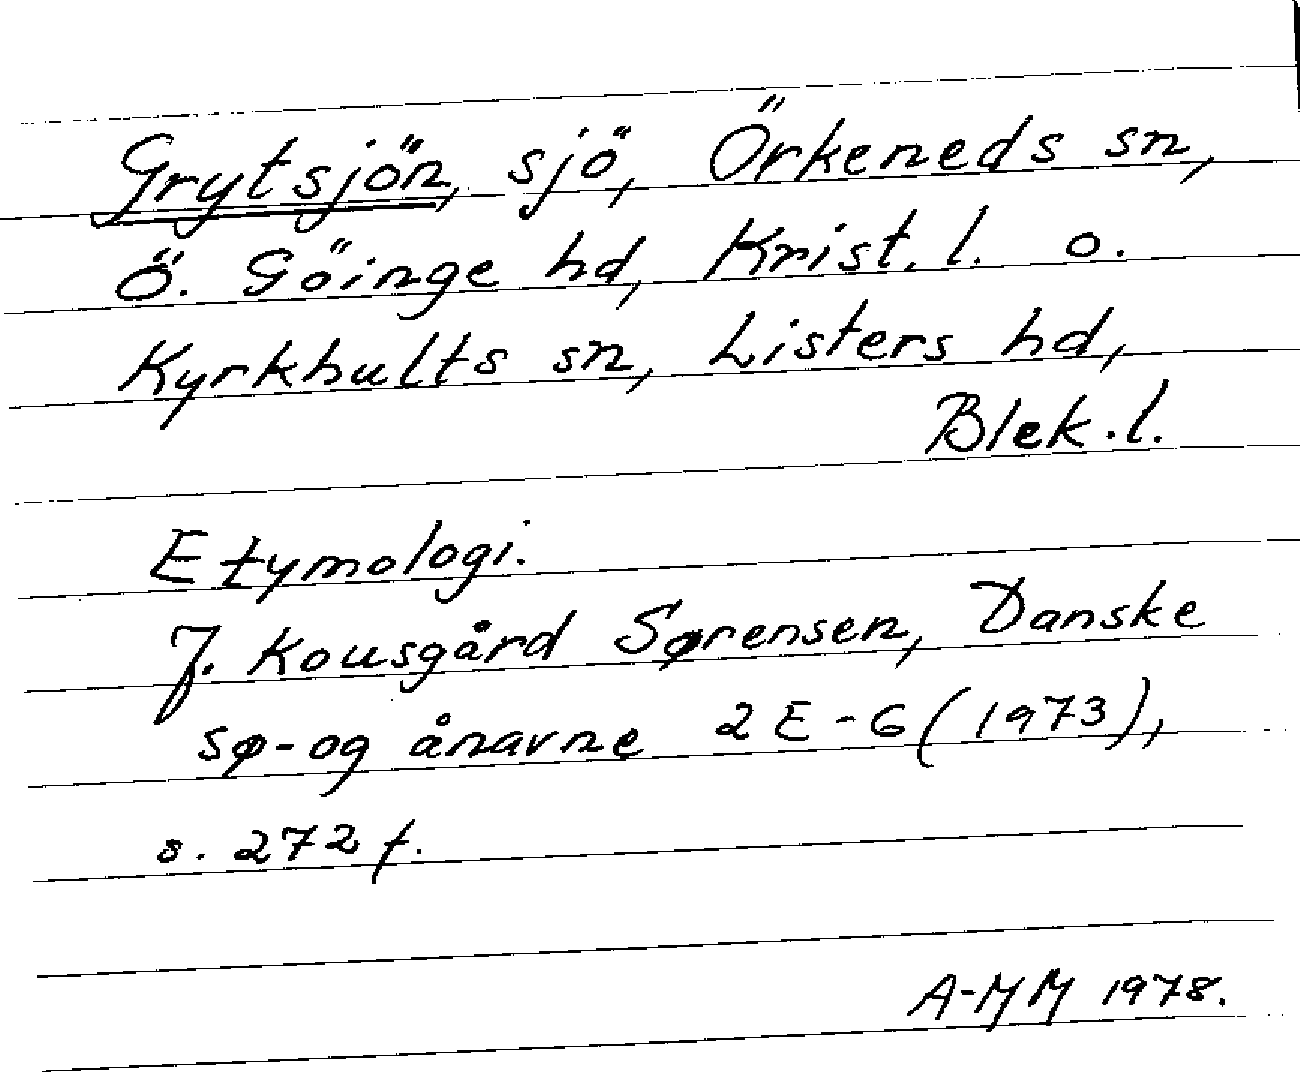 Grytsjön, sjö, Örkeneds sn,
Ö. Göinge hd, Krist. l. o.
Kyrkhults sn, Listers hd,
Blek. l.
Etymologi.
J. Kousgård Sørensen, Danske
sø- og ånavne 2 E-G (1973),
s. 272 f.
A-MM 1978.